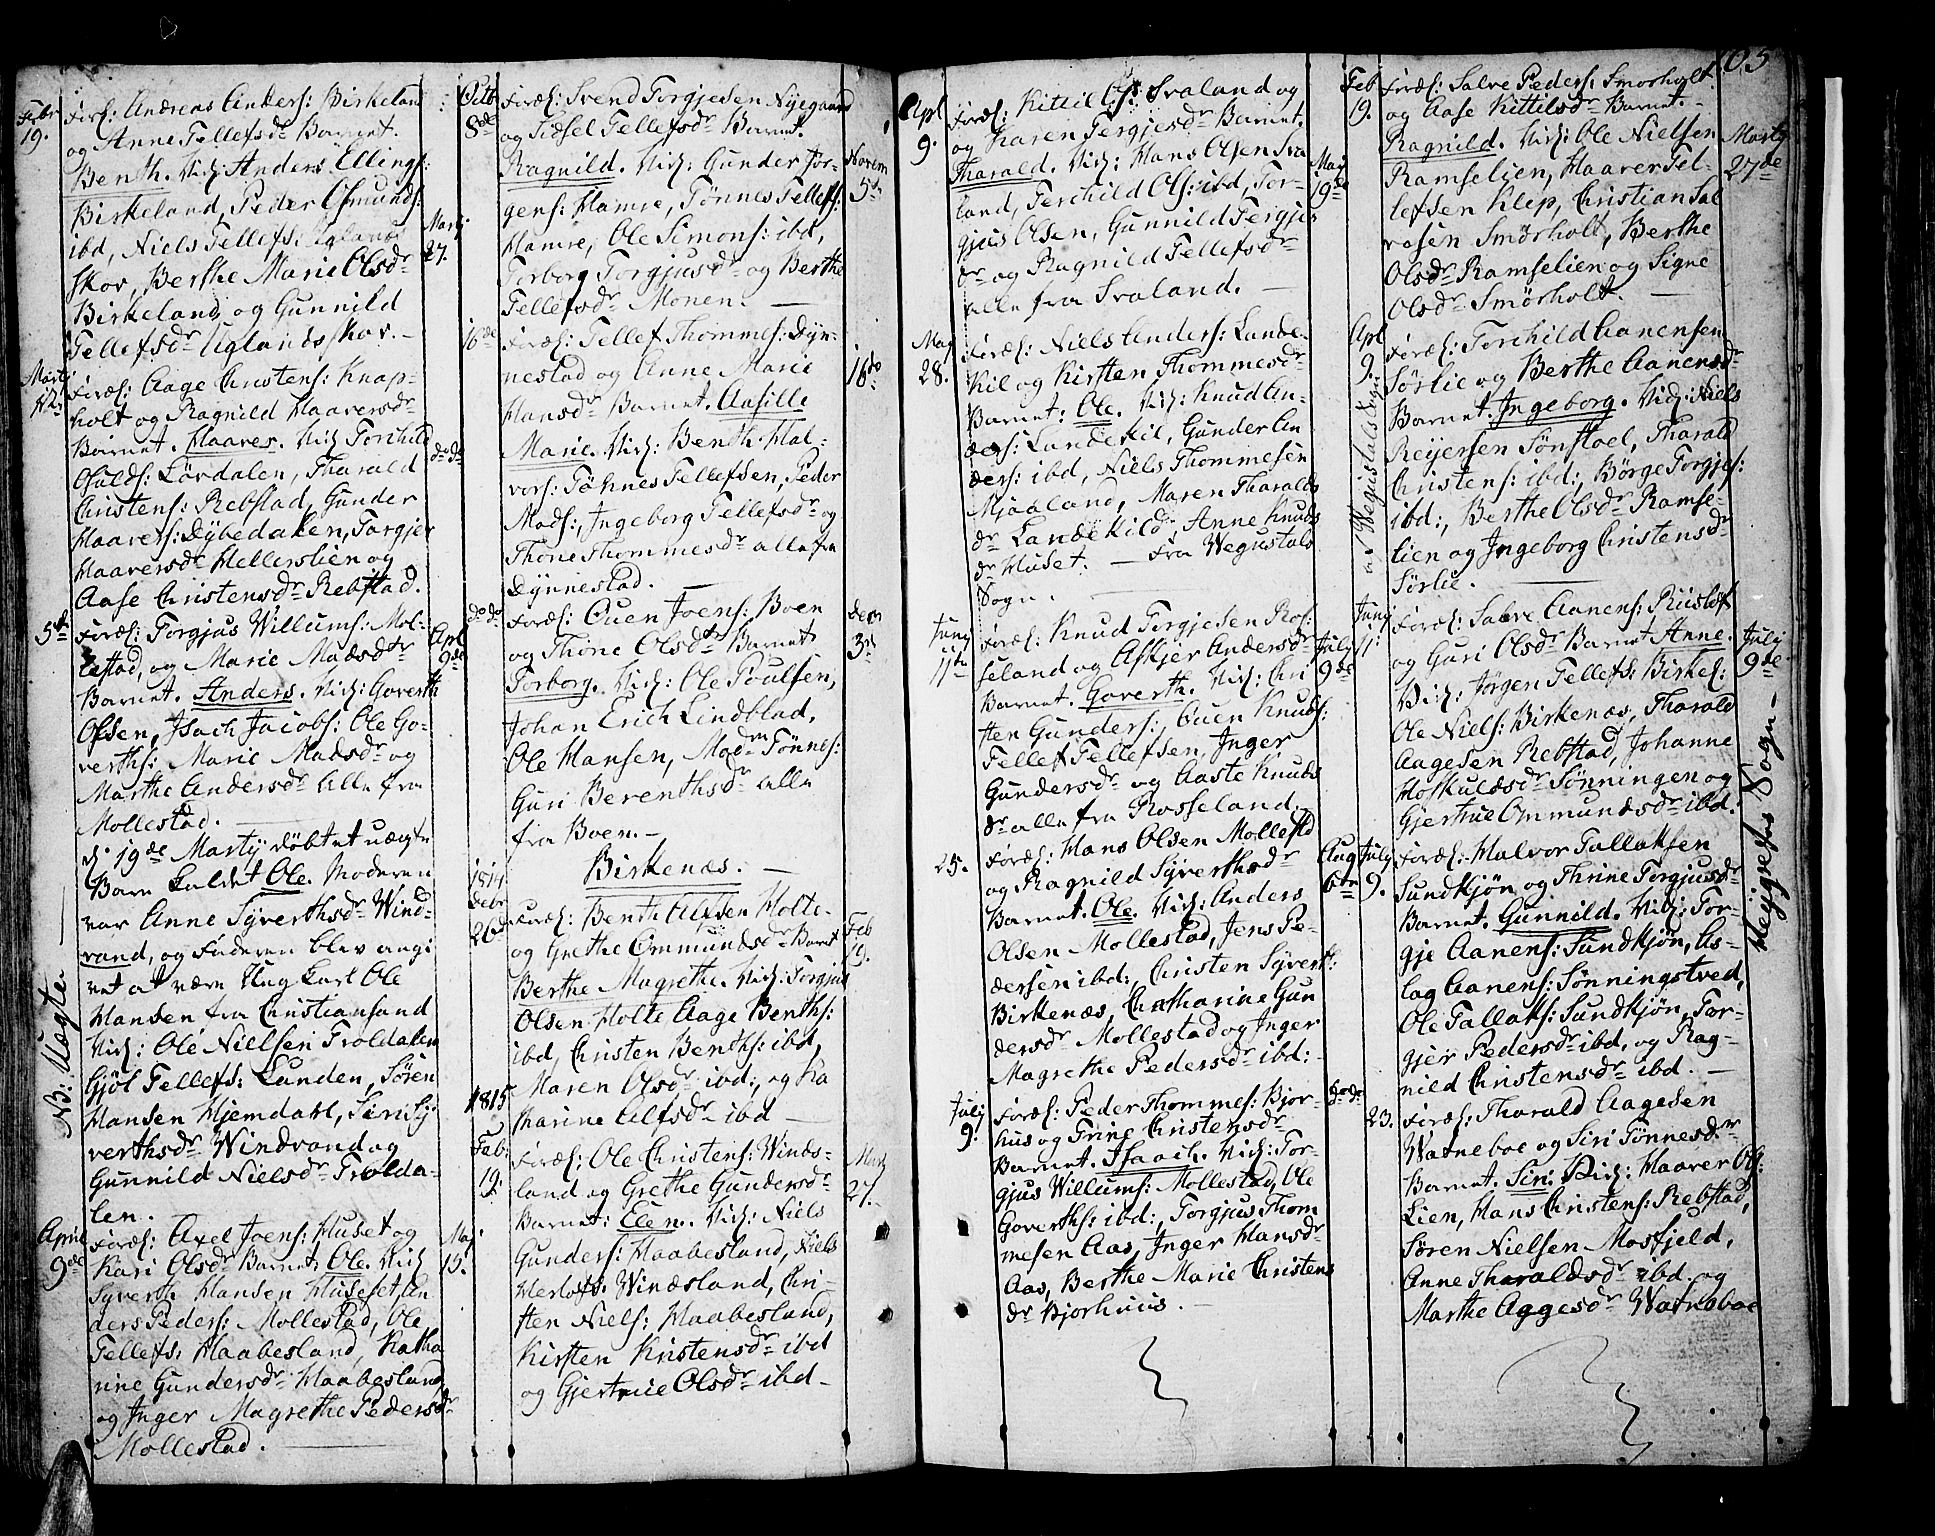 Febr
19.
Foræl: Andreas Anders: Birkeland
og Anne Tellefsdr Barnet.
Benth. Vid: Anders Ellings:
Birkeland, Peder Osmunds:
ibd, Niels Tellefs: Uglands
skov, Berthe Marie Olsdr
Birkeland og Gunnild
Tellefsdr Uglandsskov.
Martj
27.
Martj
12.
Foræl: Aage Christens: Knap-
holt og Ragnild Haaversdr
Barnet. Haaver. Vid: Torchild
Osulds: Lövdalen, Tharald
Christens: Rebstad, Gunder
Haavers: Dybedaken, Torgjer
Haaversdr Hellerslien og
Aase Christensdr Rebstad.
do do
5te
Foræl: Torgjus Willums: Mol-
lestad, og Marie Madsdr
Barnet. Anders. Vid: Goverth
Olsen, Isach Jacobs: Ole Go-
verths: Marie Madsdr og
Marthe Andersdr alle fra
Mollestad.
Apl
9de
NB: Uægte
d. 19de Martij döbt et uægte
Barn kaldet Ole. Moderen
var Anne Syverthsdr Wind-
rand, og Faderen blev angi
vet at være Ung Karl Ole
Hansen fra Christiansand
Vid: Ole Nielsen Troldalen
Gjöl Tellefs: Lunden, Sören
Hansen Hjemdahl, Siri Sy-
verthsdr Windrand og
Gunnild Nielsdr Trolda-
len.
April
9de
Foræl: Axel Joens: Huset og
Kari Olsdr Barnet: Ole. Vid:
Syverth Hansen Huset An
ders Peders: Mollestad, Ole
Tellefs: Haabesland, Katha
rine Gundersdr Haabesland
og Inger Magrethe Pedersdr
Mollestad.
Maj
15.
Octb
8de
Foræl: Svend Torgjesen Nyegaard
og Sidsel Tellefsdr Barnet.
Ragnild. Vid: Gunder Jör-
gens: Hamre, Tönnes Tellefs:
Hamre, Ole Simons: ibd,
Torborg Torgjusdr og Berthe
Tellefsdr Monen.
Novem
5te
16de
Foræl: Tellef Thommes: Dyn-
nestad og Anne Marie
Hansdr Barnet. Aasille
Marie. Vid: Benth Hal-
vors: Töhnes Tellefsen, Peder
Mads:, Ingeborg Tellefsdr og
Thone Thommesdr alle fra
Dynnestad.
16de
do do
Foræl: Ouen Joens: Boen
og Thone Olsdr Barnet
Torborg. Vid: Ole Poulsen,
Johan Erich Lindblad,
Ole Hansen, Madm Tönnes:
Guri Berenthsdr alle
fra Boen.
Decm
3de
Birkenæs.
1814
Debr
26de
Foræl: Benth Alfsen Holte
og Grethe Ommundsdr Barnet
Berthe Magrethe. Vid: Torgjus
Olsen Holte Aage Benths:
ibd, Christen Benths: ibd,
Maren Olsdr ibd:, og Ka
tharine Alfsdr ibd
Feb
19.
1815
Feb:
19.
Foræl: Ole Christens: Winds-
land og Grethe Gundersdr
Barnet: Elen. Vid: Niels
Gunders: Haabesland, Niels
Herlofs: Windsland, Chri-
sten Niels: Haabesland,
Kirsten Kristensdr ibd
og Gjertrue Olsdr ibd
Martj
27.
Apl
9.
Foræl: Kittil Ols: Svaland og
og Karen Tergjesdr Barnet.
Tharald. Vid: Hans Olsen Sva
land, Terchild Ols: ibd, Tor-
gjus Olsen, Gunnild Tergjes
dr og Ragnild Tellefsdr
alle fra Svaland.
Maj
19de
Maj
28.
Foræl: Niels Anders: Lande-
kil og Kirsten Thommesdr
Barnet: Ole. Vid: Knud An-
ders: Landekil, Gunder An
ders: ibd, Niels Thommesen
Mjaaland, Maren Tharalds
dr Landekild, Anne Knuds
dr Huset. — fra Wegusdals
Sogn.
Junj
11te
Foræl: Knud Torgjesen Ros-
seland og Askjer Andersdr
Barnet. Goverth. Vid: Chri
sten Gunders:, Ouen Knuds:
Tellef Tellefsen, Inger
Gundersdr og Aaste Knuds
dr alle fra Rosseland.
July
9de
25.
Foræl: Hans Olsen Mollestd
og Ragnild Syverthsdr
Barnet. Ole. Vid: Anders
Olsen Mollestad, Jens Pe-
dersen ibd: Christen Syverth:
Birkenæs, Chatharine Gun
dersdr Mollestad og Inger
Magrethe Pedersdr ibd:
Aug
6te
Julj
9.
Foræl: Peder Thommes: Bjor-
huus og Trine Christensdr
Barnet. Isaach. Vid: Tor-
gjus Willums: Mollestad, Ole
Goverths: ibd:, Torgjus Thom
mesen Aas, Inger Hansdr
Aas, Berthe Marie Christens
dr Bjorhuus.
do do
105
Feb
19.
Foræl: Salve Peders: Smörholt
og Aase Kittilsdr Barnet.
Ragnild. Vid: Ole Nielsen
Ramselien, Haaver Tel-
lefsen Klep, Christian Sal
vesen Smörholt, Berthe
Olsdr Ramselien og Signe
Olsdr Smörholt.
Martj
27de
Apl
9.
i Wegusdals Sogn
Foræl: Torchild Aanensen
Sörlie og Berthe Aanensdr
Barnet. Ingeborg. Vid: Niels
Reyersen Sönstoel, Tharald
Christens: ibd:, Börge Torgjes:
ibd:, Berthe Olsdr Ramse-
lien og Ingeborg Christensdr
Sörlie.
Junj
11.
Foræl: Salve Aanens: Riislöf
og Guri Olsdr Barnet Anne.
Vid: Jörgen Tellefs: Birkel:
Ole Niels: Birkenæs, Tharald
Aagesen Rebstad, Johanne
Hoskuldsdr Sönningen og
Gjertrue Ommundsdr ibd.
Julj
9de
Höjrefos Sogn
July
9.
Foræl: Halvor Tallaksen
Sundkjön og Thrine Torgjusdr
Barnet. Gunnild. Vid: Tor-
gje Aanens: Sundkjön, As-
lag Aanens: Sönningstved,
Ole Tallaks: Sundkjön, Tor-
gjer Pedersdr ibd, og Rag-
nild Christensdr ibd.
23.
Foræl: Tharald Aagesen
Watneboe og Siri Tönnesdr
Barnet. Siri. Vid: Haaver Ols:
Lien, Hans Christens: Rebstad,
Sören Nielsen Mosfjeld,
Anne Tharaldsdr ibd. og
Marthe Aggesdr Watneboe